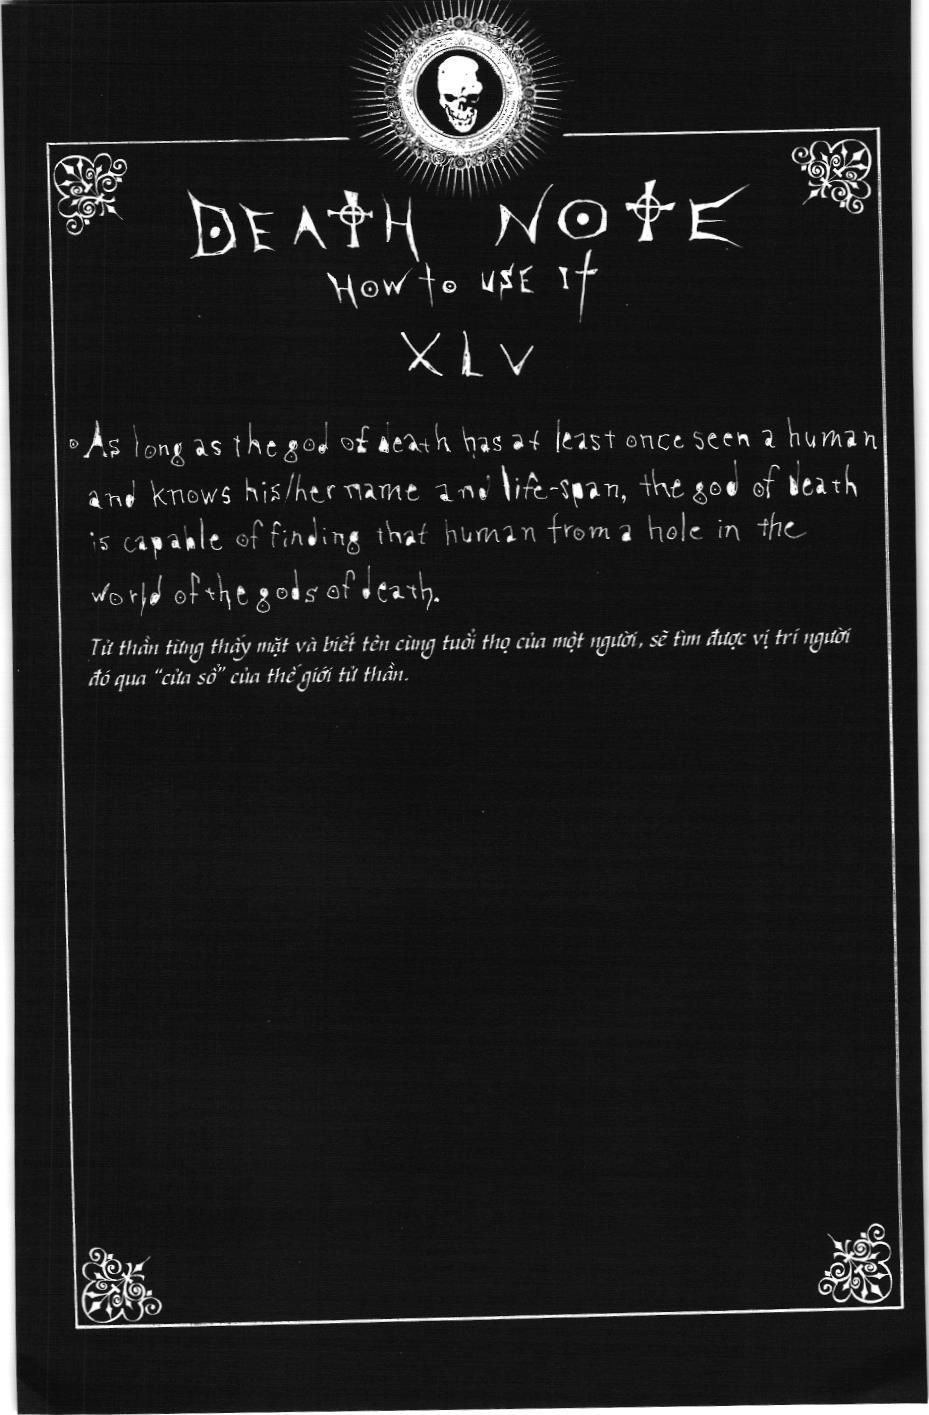 DEATH NOTE
HOW to USE IT
XLV
As long as the god of death has at least once seen a human
and knows his/her name and life-span, the god of death
is capable of finding that human from a hole in the
world of the gods of death.
Tử thần từng thấy mặt và biết tên cùng tuổi thọ của một người, sẽ tìm được vị trí người
đó qua “cửa sổ” của thế giới tử thần.